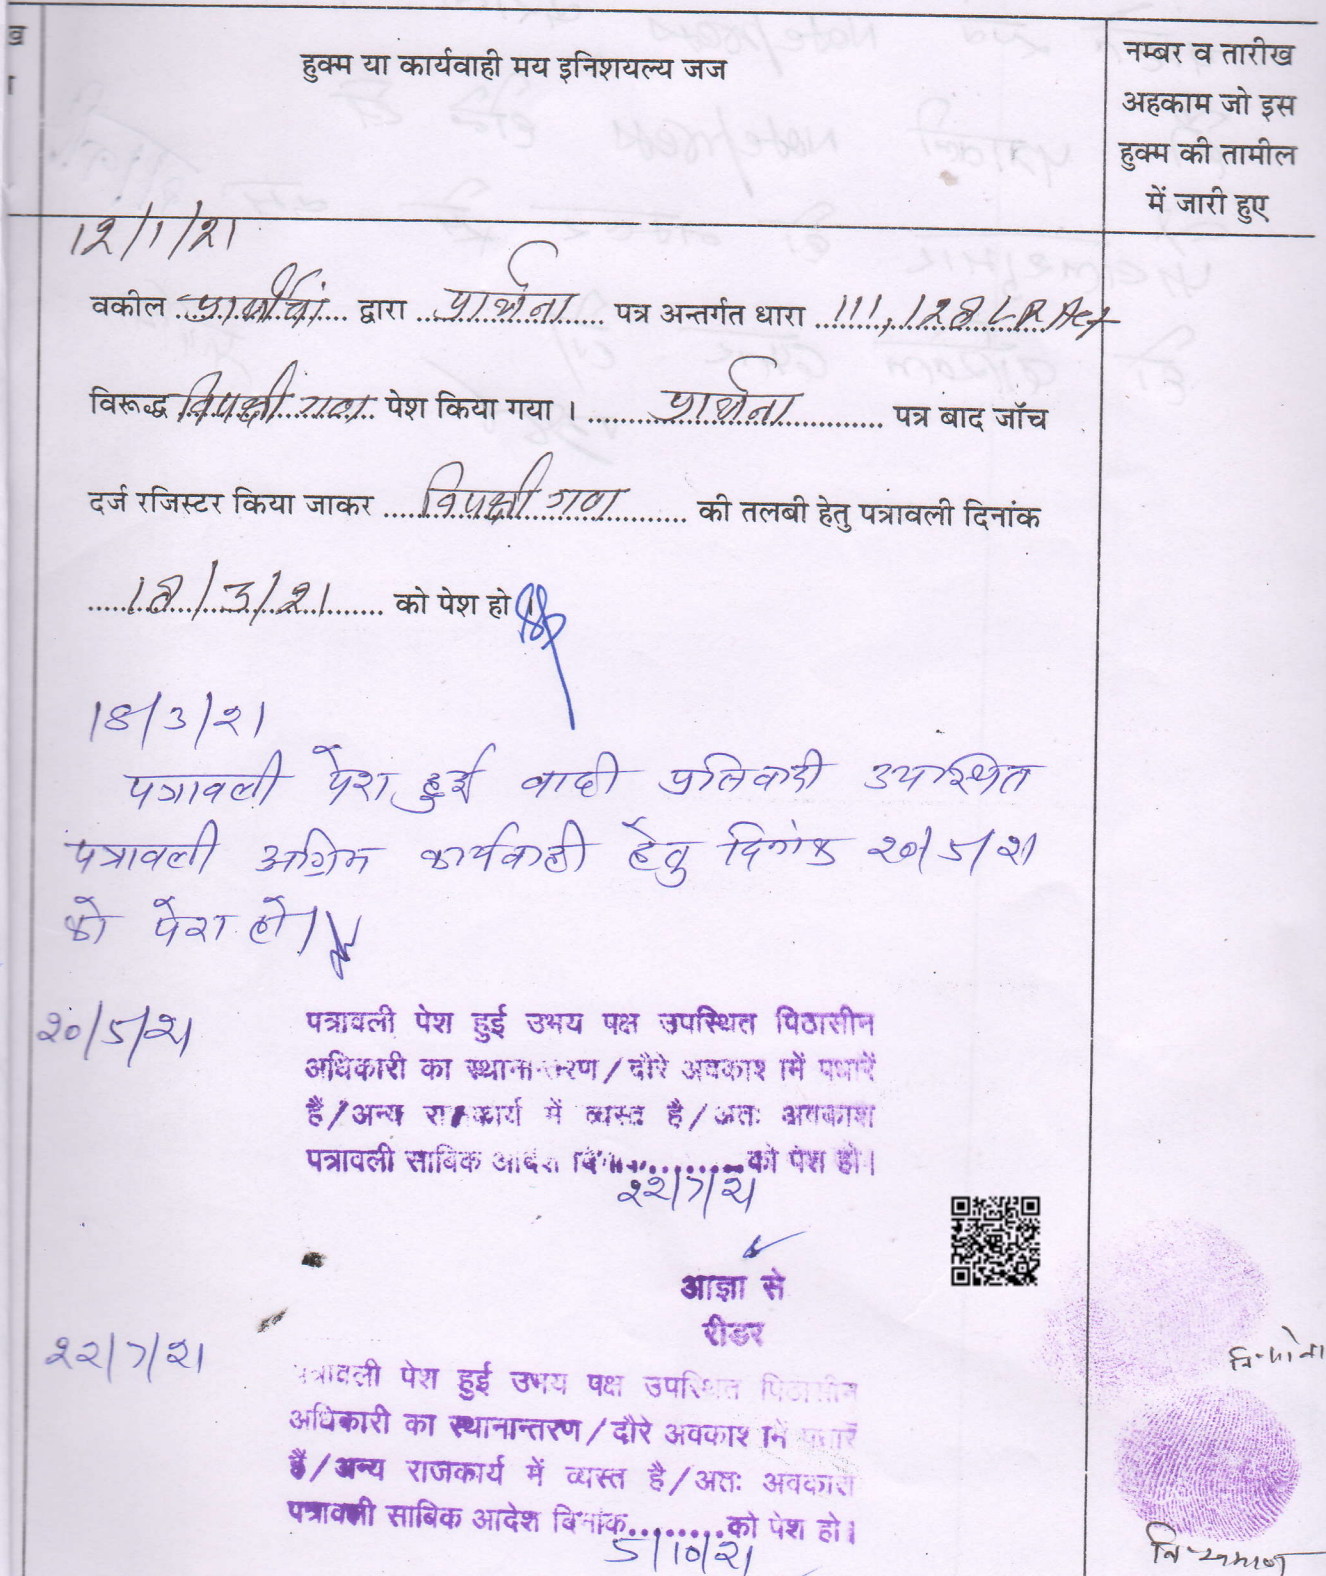 हुक्म या कार्यवाही मय इनिशयल्य जज
नम्बर व तारीख
अहकाम जो इस
हुक्म की तामील
में जारी हुए
12/1/21
वकील प्रार्थीयां द्वारा प्रार्थना पत्र अन्तर्गत धारा 111, 128 LR Act
विरूद्ध विपक्षी गण पेश किया गया । प्रार्थना पत्र बाद जॉच
दर्ज रजिस्टर किया जाकर विपक्षी गण की तलबी हेतु पत्रावली दिनांक
18/3/21 को पेश हो ।
18/3/21
पत्रावली पेश हुई वादी प्रतिवादी उपस्थित
पत्रावली अग्रिम कार्यवाही हेतु दिनांक 20/5/21
को पेश हो।
20/5/21
पत्रावली पेश हुई उभय पक्ष उपस्थित पिठासीन
अधिकारी का स्थानान्तरण/दौरे अवकाश में पधारें
हैं/अन्य राजकार्य में व्यस्त है/अतः अवकाश
पत्रावली साबिक आदेश दिनांक.........को पेश हो।
22/7/21
आज्ञा से
रीडर
22/7/21
पत्रावली पेश हुई उभय पक्ष उपस्थित पिठासीन
अधिकारी का स्थानान्तरण/दौरे अवकाश में पधारें
हैं/अन्य राजकार्य में व्यस्त है/अतः अवकाश
पत्रावली साबिक आदेश दिनांक.........को पेश हो।
5/10/21